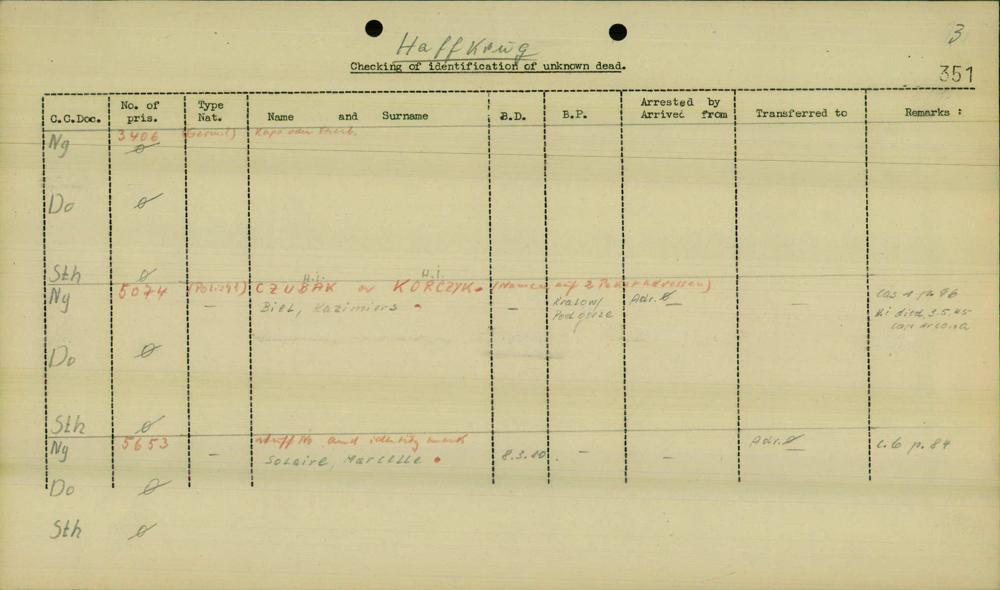 HaffKrug
3
Checking of identification of unknown dead.
351
C.C.Doc. No. of pris. Type Nat. Name and Surname B.D. B.P. Arrested by Arrived from Transferred to Remarks :
Ng 3406 Kapo oder
Ø
Do Ø
Sth Ø
H.i. H.i.
Ng 5074 CZUBAK or KORCZYK. (Namen auf 2 Paketadressen)
Biel, Kazimiers - Krakow/ Adr. Ø cas 1 p. 76
Podgorze hi died 3.5.45
Cap Arcona
Do Ø
Sth Ø
Ng 5653 - stuff No and identity mark Adr. Ø c. 6 p. 84
Solaire, Marcelle 8.3.10 - -
Do Ø
Sth Ø